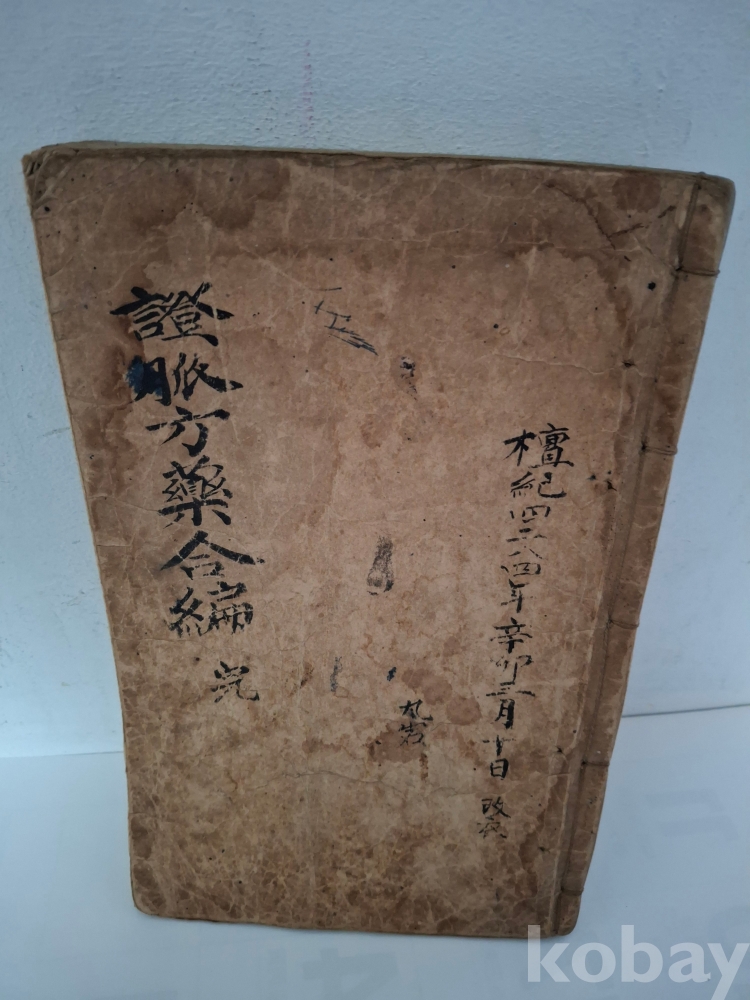 檀紀四二八四年辛卯三月十日 改衣
證脈方藥合編 完